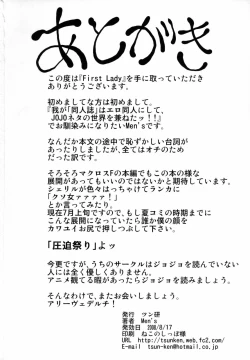 あとがき
この度は『First Lady』を手に取っていただき
ありがとうございます。
初めましてな方は初めまして。
『我が「同人誌」はエロ同人にして、
JOJOネタの世界を兼ねたッ!!』
でお馴染みになりたいMen'sです。
なんだか本文の途中で恥ずかしい台詞が
あったりしましたが、全てはオチのため
だった訳です。
そろそろマクロスFの本編でもこの本の様な
展開があってもいいのではないかと期待しています。
シェリルが色々はっちゃけてランカに
「クソ女ァァァァ!」
とか言ってみたり。
現在7月上旬ですので、もし夏コミの時期までに
こんな展開になっていたら誰か僕の顔を
カワユイお尻で押しつぶして下さい。
「圧迫祭り」よッ
今更ですが、うちのサークルはジョジョを読んでいない
人には全く優しくありません。
アニメ観てる暇があったらジョジョを読みましょう。
そんなわけで、またお会いしましょう。
アリーヴェデルチ!
発行 ツン研
著者 Men's
発効日 2008/8/17
印刷 ねこのしっぽ様
URL http://tsunken.web.fc2.com/
E-mail tsun-ken@hotmail.co.jp